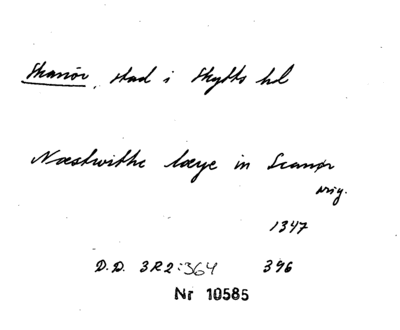 Skanör, stad i Skytts hd
Næstwithe læye in Scanør
orig.
1347
D.D. 3R2:364 396
Nr 10585